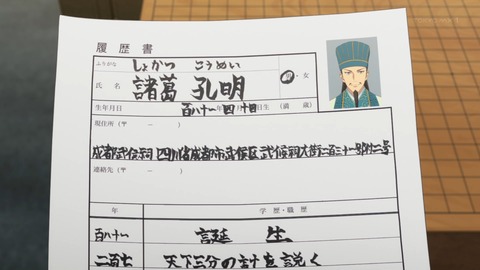 履 歴 書
ふりがな しょかつ こうめい
氏 名 諸葛 孔明 男・女
生年月日 百八十一 四 十日生 (満 歳)
現住所 (〒 － )
成都武侯祠 四川省成都市武侯区武侯祠大街二百三十一号附二号
連絡先 (〒 － )
年 学 歴・職 歴
百八十一 誕 生
二百七 天下三分の計を説く